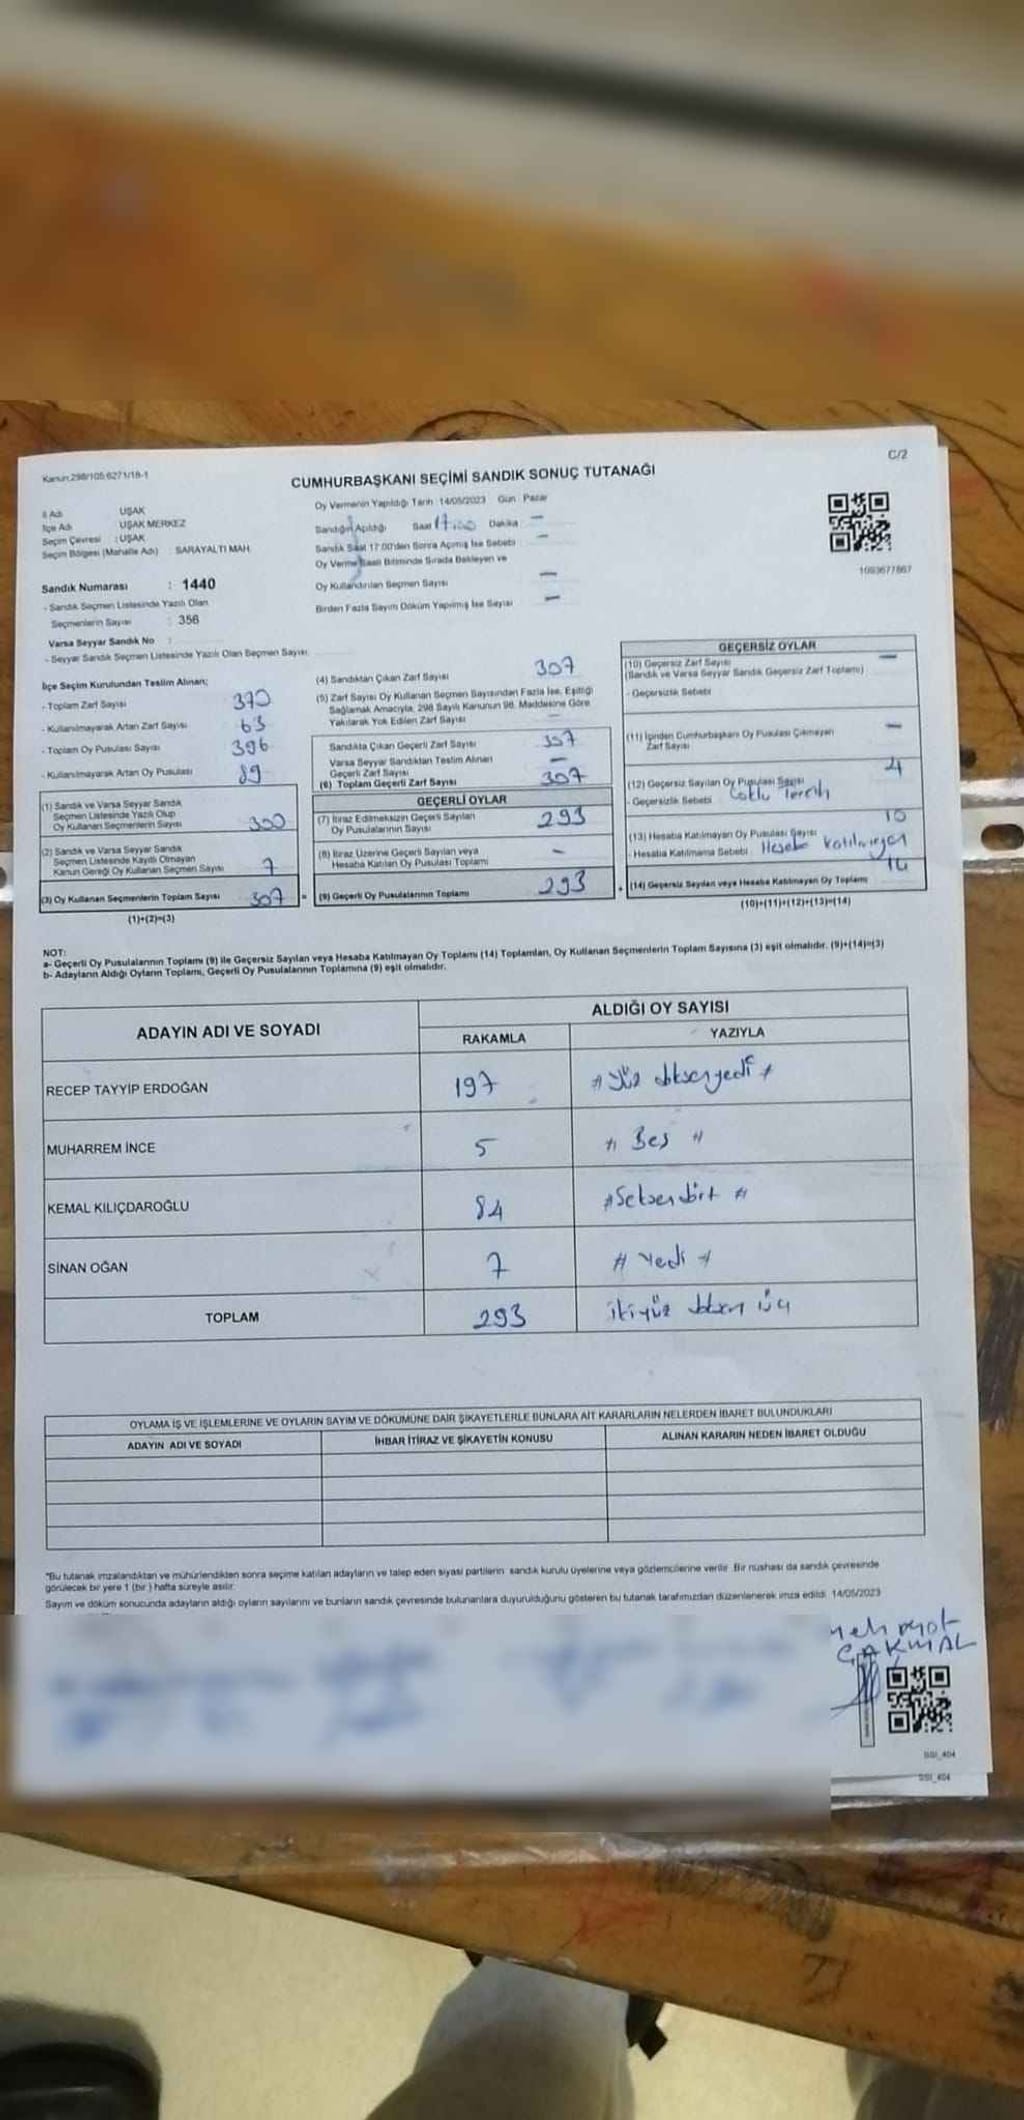 Kanun:298/105:6271/18-1
C/2
CUMHURBAŞKANI SEÇİMİ SANDIK SONUÇ TUTANAĞI
İl Adı : UŞAK
İlçe Adı : UŞAK MERKEZ
Seçim Çevresi : UŞAK
Seçim Bölgesi (Mahalle Adı) : SARAYALTI MAH.
Sandık Numarası : 1440
- Sandık Seçmen Listesinde Yazılı Olan
Seçmenlerin Sayısı : 356
Varsa Seyyar Sandık No :
- Seyyar Sandık Seçmen Listesinde Yazılı Olan Seçmen Sayısı:
Oy Vermenin Yapıldığı Tarih : 14/05/2023 Gün : Pazar
Sandığın Açıldığı Saat 17:00 Dakika —
Sandık Saat 17:00'den Sonra Açımış İse Sebebi : —
Oy Verme Saati Bitiminde Sırada Bekleyen ve
Oy Kullandırılan Seçmen Sayısı —
Birden Fazla Sayım Döküm Yapılmış İse Sayısı —
1093677867
İlçe Seçim Kurulundan Teslim Alınan;
- Toplam Zarf Sayısı 370
- Kullanılmayarak Artan Zarf Sayısı 63
- Toplam Oy Pusulası Sayısı 396
- Kullanılmayarak Artan Oy Pusulası 89
(1) Sandık ve Varsa Seyyar Sandık
Seçmen Listesinde Yazılı Olup
Oy Kullanan Seçmenlerin Sayısı 300
(2) Sandık ve Varsa Seyyar Sandık
Seçmen Listesinde Kayıtlı Olmayan
Kanun Gereği Oy Kullanan Seçmen Sayısı 7
(3) Oy Kullanan Seçmenlerin Toplam Sayısı 307 =
(1)+(2)=(3)
(4) Sandıktan Çıkan Zarf Sayısı 307
(5) Zarf Sayısı Oy Kullanan Seçmen Sayısından Fazla İse, Eşitliği
Sağlamak Amacıyla, 298 Sayılı Kanunun 98. Maddesine Göre
Yakılarak Yok Edilen Zarf Sayısı —
Sandıkta Çıkan Geçerli Zarf Sayısı 307
Varsa Seyyar Sandıktan Teslim Alınan
Geçerli Zarf Sayısı —
(6) Toplam Geçerli Zarf Sayısı 307
GEÇERLİ OYLAR
(7) İtiraz Edilmeksizin Geçerli Sayılan
Oy Pusulalarının Sayısı 293
(8) İtiraz Üzerine Geçerli Sayılan veya
Hesaba Katılan Oy Pusulası Toplamı —
(9) Geçerli Oy Pusulalarının Toplamı 293 +
GEÇERSİZ OYLAR
(10) Geçersiz Zarf Sayısı —
(Sandık ve Varsa Seyyar Sandık Geçersiz Zarf Toplamı)
- Geçersizlik Sebebi :
(11) İçinden Cumhurbaşkanı Oy Pusulası Çıkmayan
Zarf Sayısı —
(12) Geçersiz Sayılan Oy Pusulası Sayısı 4
- Geçersizlik Sebebi : Çoklu Tercih
(13) Hesaba Katılmayan Oy Pusulası Sayısı 10
- Hesaba Katılmama Sebebi : Hesaba katılmayan
(14) Geçersiz Sayılan veya Hesaba Katılmayan Oy Toplamı 14
(10)+(11)+(12)+(13)=(14)
NOT:
a- Geçerli Oy Pusulalarının Toplamı (9) ile Geçersiz Sayılan veya Hesaba Katılmayan Oy Toplamı (14) Toplamları, Oy Kullanan Seçmenlerin Toplam Sayısına (3) eşit olmalıdır. (9)+(14)=(3)
b- Adayların Aldığı Oyların Toplamı, Geçerli Oy Pusulalarının Toplamına (9) eşit olmalıdır.
ADAYIN ADI VE SOYADI ALDIĞI OY SAYISI
RAKAMLA YAZIYLA
RECEP TAYYİP ERDOĞAN 197 # Yüz doksanyedi #
MUHARREM İNCE 5 # Beş #
KEMAL KILIÇDAROĞLU 84 # Seksendört #
SİNAN OĞAN 7 # Yedi #
TOPLAM 293 ikiyüz doksan üç
OYLAMA İŞ VE İŞLEMLERİNE VE OYLARIN SAYIM VE DÖKÜMÜNE DAİR ŞİKAYETLERLE BUNLARA AİT KARARLARIN NELERDEN İBARET BULUNDUKLARI
ADAYIN ADI VE SOYADI İHBAR İTİRAZ VE ŞİKAYETİN KONUSU ALINAN KARARIN NEDEN İBARET OLDUĞU
*Bu tutanak imzalandıktan ve mühürlendikten sonra seçime katılan adayların ve talep eden siyasi partilerin sandık kurulu üyelerine veya gözlemcilerine verilir. Bir nüshası da sandık çevresinde
görülecek bir yere 1 (bir) hafta süreyle asılır.
Sayım ve döküm sonucunda adayların aldığı oyların sayılarını ve bunların sandık çevresinde bulunanlara duyurulduğunu gösteren bu tutanak tarafımızdan düzenlenerek imza edildi. 14/05/2023
ÇAKMAK
SSI_404
SSI_404